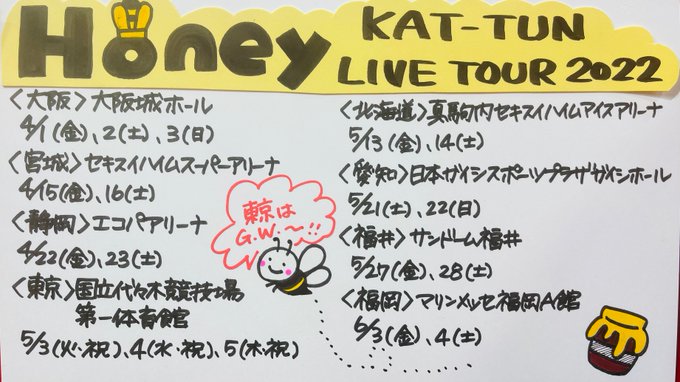 Honey
KAT-TUN
LIVE TOUR 2022
〈大阪〉大阪城ホール
4/1(金)、2(土)、3(日)
〈宮城〉セキスイハイムスーパーアリーナ
4/15(金)、16(土)
〈静岡〉エコパアリーナ
4/22(金)、23(土)
〈東京〉国立代々木競技場
第一体育館
5/3(火・祝)、4(水・祝)、5(木・祝)
東京は
G.W.〜!!
〈北海道〉真駒内セキスイハイムアイスアリーナ
5/13(金)、14(土)
〈愛知〉日本ガイシスポーツプラザガイシホール
5/21(土)、22(日)
〈福井〉サンドーム福井
5/27(金)、28(土)
〈福岡〉マリンメッセ福岡A館
6/3(金)、4(土)